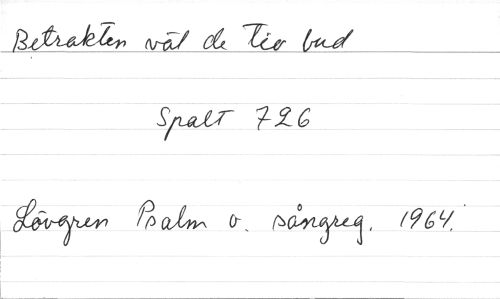 Betrakten väl de tio bud
Spalt 726
Lövgren Psalm o. sångreg. 1964.